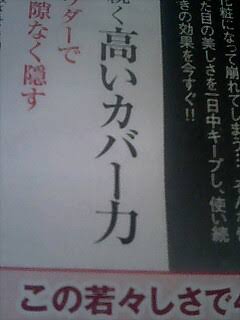 化粧になって崩れてしまう…
た目の美しさを一日中キープし、使い続
きの効果を今すぐ!!
く高いカバー力
ダーで
隙なく隠す
この若々しさで